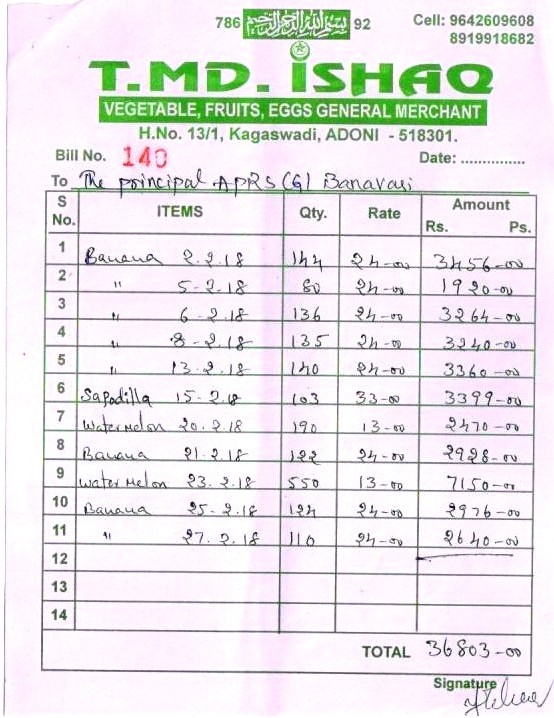 786 بسم الله الرحمن الرحيم 92
Cell: 9642609608
8919918682
T.MD. ISHAQ
VEGETABLE, FRUITS, EGGS GENERAL MERCHANT
H.No. 13/1, Kagaswadi, ADONI - 518301.
Bill No. 140 Date: ...............
To The principal APRS (G) Banavasi
S No. ITEMS Qty. Rate Amount Rs. Ps.
1 Banana 2.2.18 144 24-00 3456-00
2 " 5-2.18 80 24-00 1920-00
3 " 6-2.18 136 24-00 3264-00
4 " 8-2.18 135 24-00 3240-00
5 " 13-2.18 140 24-00 3360-00
6 Sapodilla 15-2.18 103 33-00 3399-00
7 Water melon 20-2.18 190 13-00 2470-00
8 Banana 21-2.18 122 24-00 2928-00
9 Water melon 23.2.18 550 13-00 7150-00
10 Banana 25-2.18 124 24-00 2976-00
11 " 27.2.18 110 24-00 2640-00
12
13
14
TOTAL 36803-00
Signature